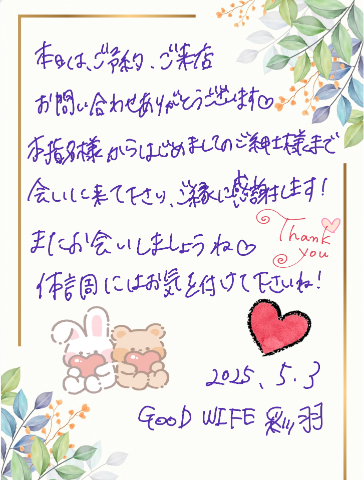 本日は、ご予約、ご来店
お問い合わせありがとうございます♡
本指名様からはじめましてのご紳士様まで
会いに来て下さり、ご縁に感謝します!
またお会いしましょうね♡
体調にはお気を付けて下さいね!
Thank
you
2025.5.3
GOOD WIFE 彩羽